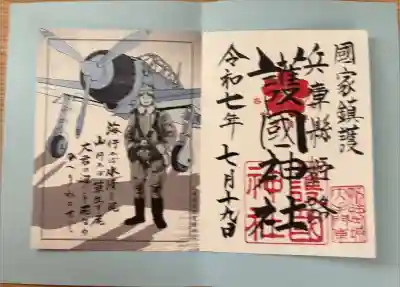 國家鎮護
兵庫縣姫路
護國神社
護國神社
令和七年 七月十九日
海行かば水漬く屍
山行かば草生す屍
大君の
かへりみはせじ